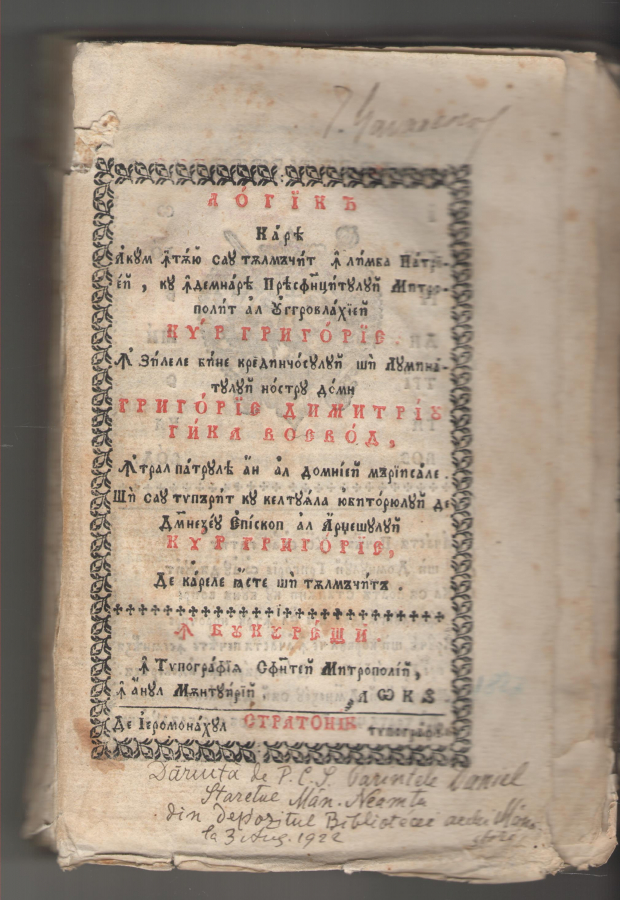 ЛО́ГІКЪ
Ка́рѣ
Аку́м ꙟ҆тѫ́ю сау тѫлмъчи́т ꙟ҆ ли́мба Па́трї-
є́й , ку ꙟ҆демна́рѣ Прѣсфн҃ци́тулуй Митро-
поли́т ал Оу҆ггровла́хїей
КѴ́Р ГРИГО́РЇЕ.
Ꙟ҆ Зи́леле би́не крединчо́сулуй ши Лумина́-
тулуй но́стру до́мн
ГРИГО́РЇЕ ДИМИТРІ́Ꙋ
ГИ́КА ВОЕВО́Д,
Ꙟ҆трал па́трулѣ а҆н ал домнїей мъ́рїисале .
Шѝ сау типъри́т ку келтуѧ́ла юбито́рюлуй де
Дм҃незе́у Є҆пі́скоп ал А҆́рџешулуй
КѴ́Р ГРИГО́РЇЕ,
Де ка́реле ꙗ҆́сте шѝ тѫлмъчи́тъ .
Ꙟ҆ БУКУРЕ́ЩИ.
ꙟ҆ Типогра́фїѧ Сфи҃нтей Митропо́лїй,
ꙟ҆ а҆́нул Мѫнтуи́рїй ,АѠКЅ.
Де І҆еромона́хул СТРАТОНИ́К типогра́фу
Dăruita de P. C. S. Parintele Daniel
Staretul Măn. Neamtu
din depozitul Bibliotecei acelei Măna-
stiri
la 3 Aug. 1922